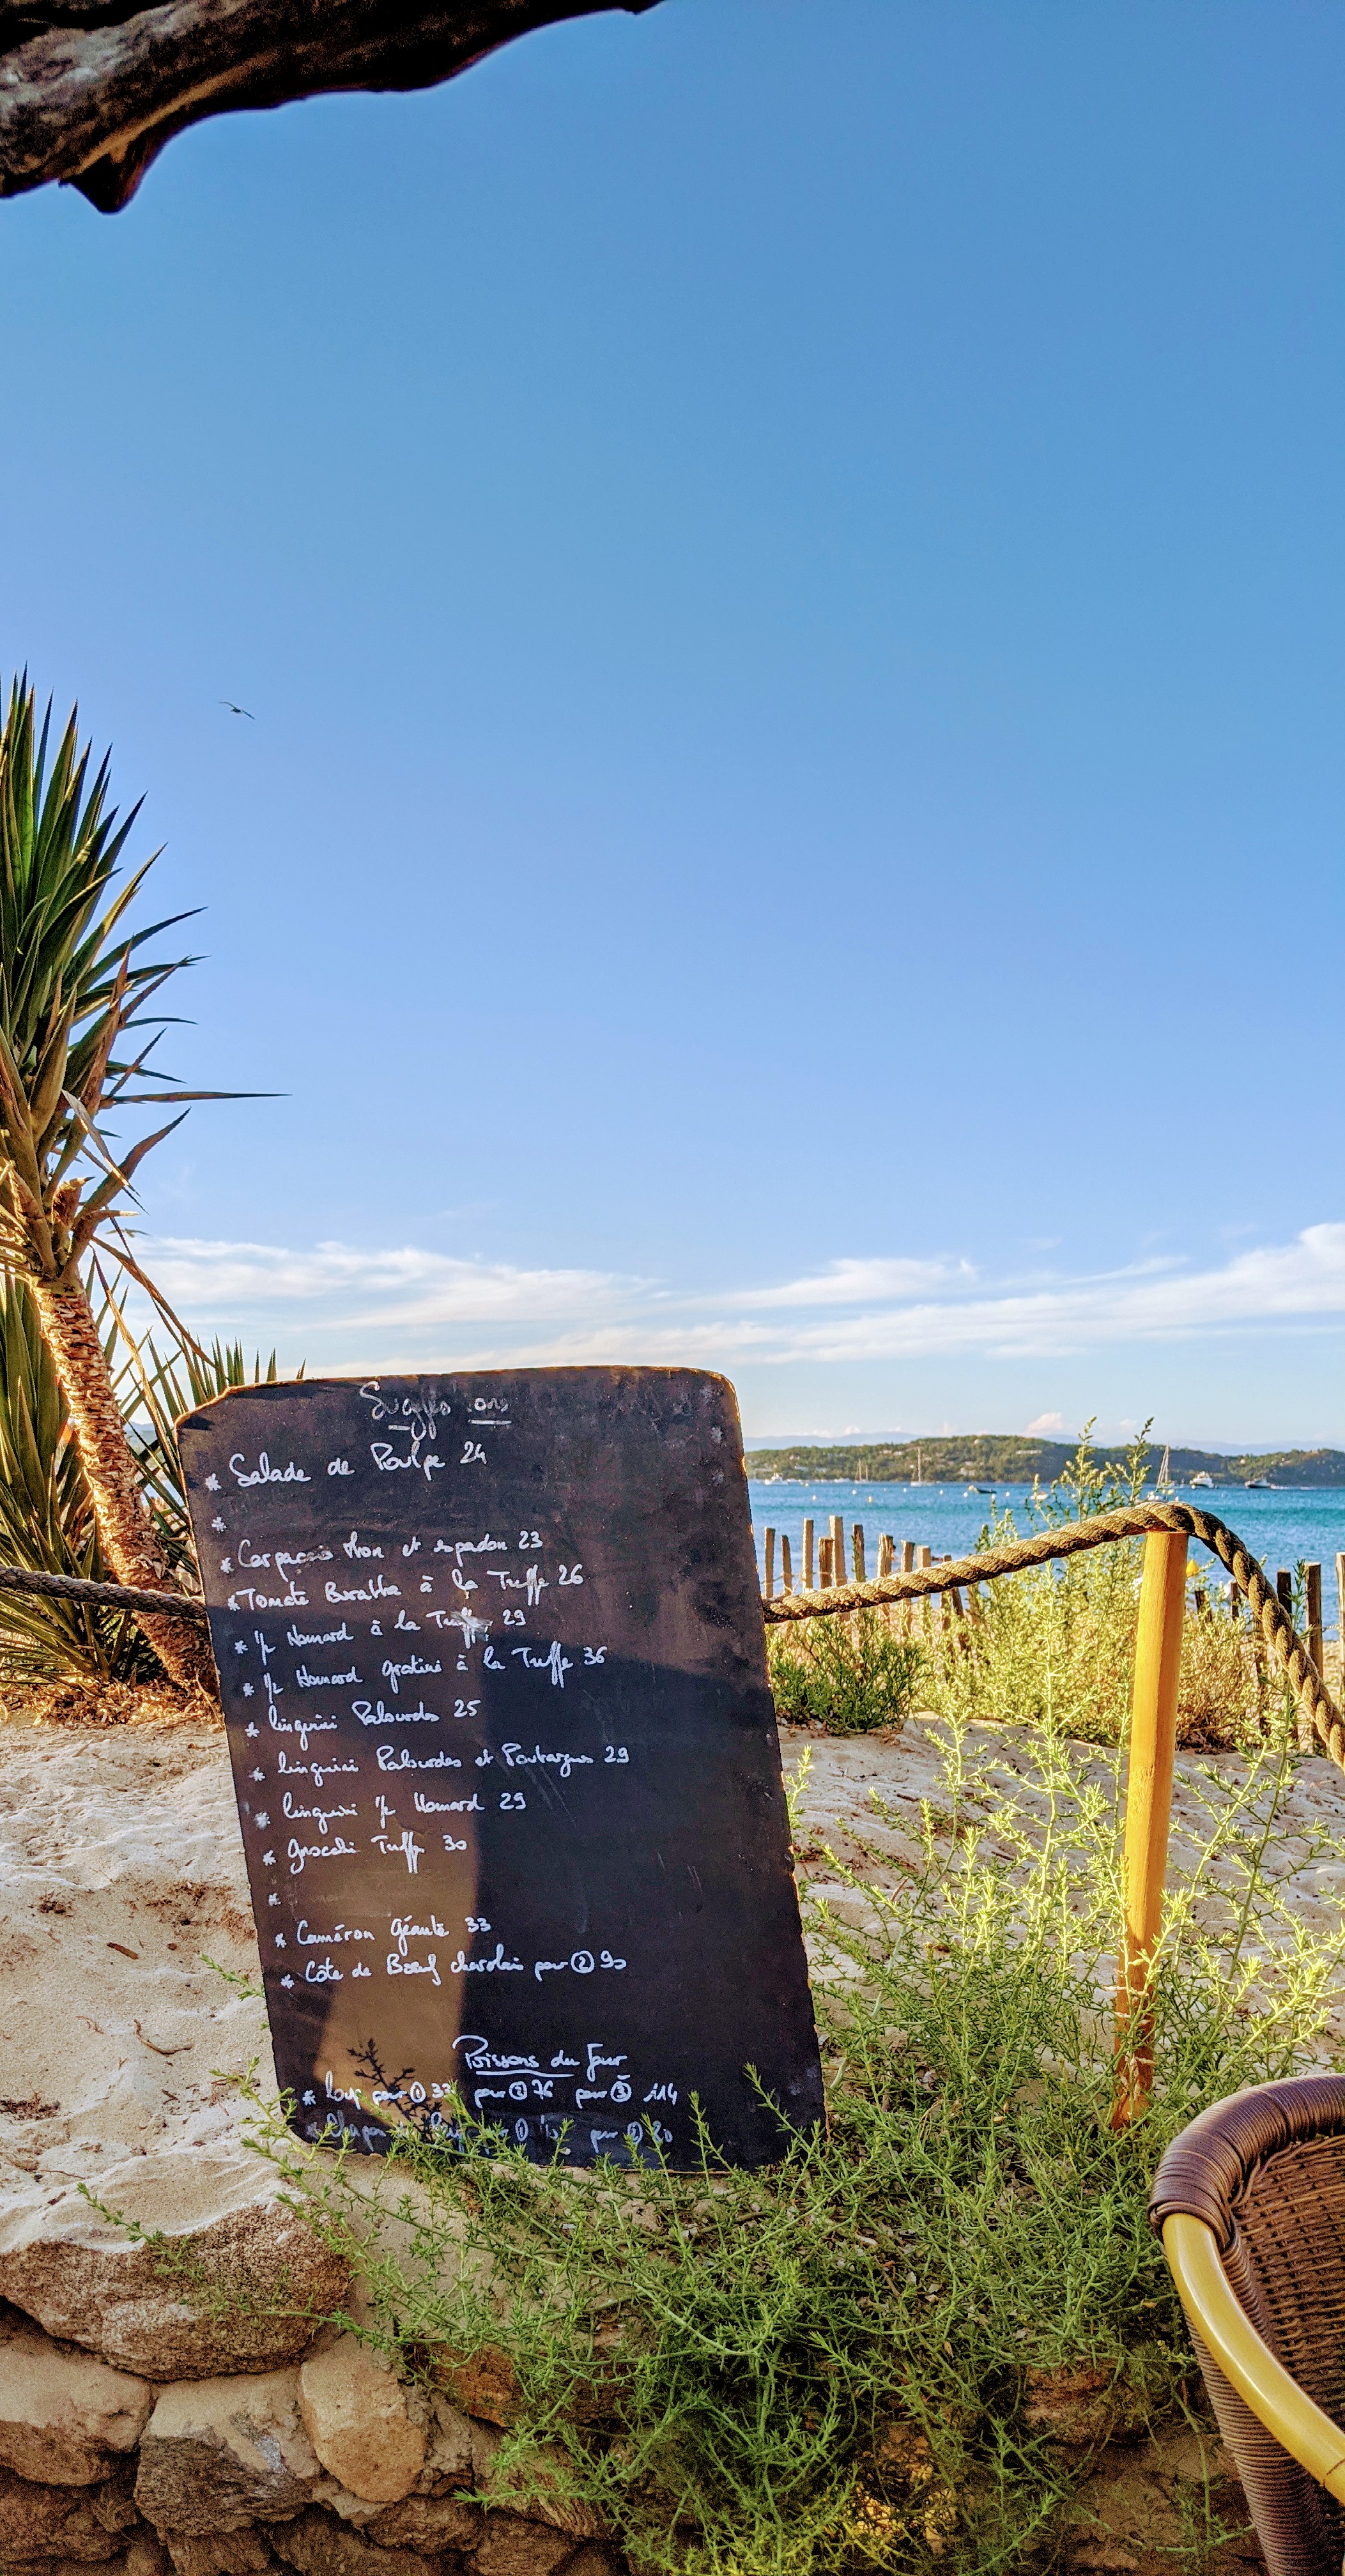 Suggestions
* Salade de Poulpe 24
*
* Carpaccio thon et espadon 23
* Tomate Buratta à la Truffe 26
* 1/2 Homard à la Truffe 29
* 1/2 Homard gratiné à la Truffe 36
* linguini Palourdes 25
* linguini Palourdes et Poutargue 29
* linguini 1/2 Homard 29
* gnocchi Truffe 30
*
* Caméron géante 33
* Côte de Bœuf charolais pour ② 90
Poissons du Jour
* loup pour ① 33 pour ② 76 pour ③ 114
* pour ② 80